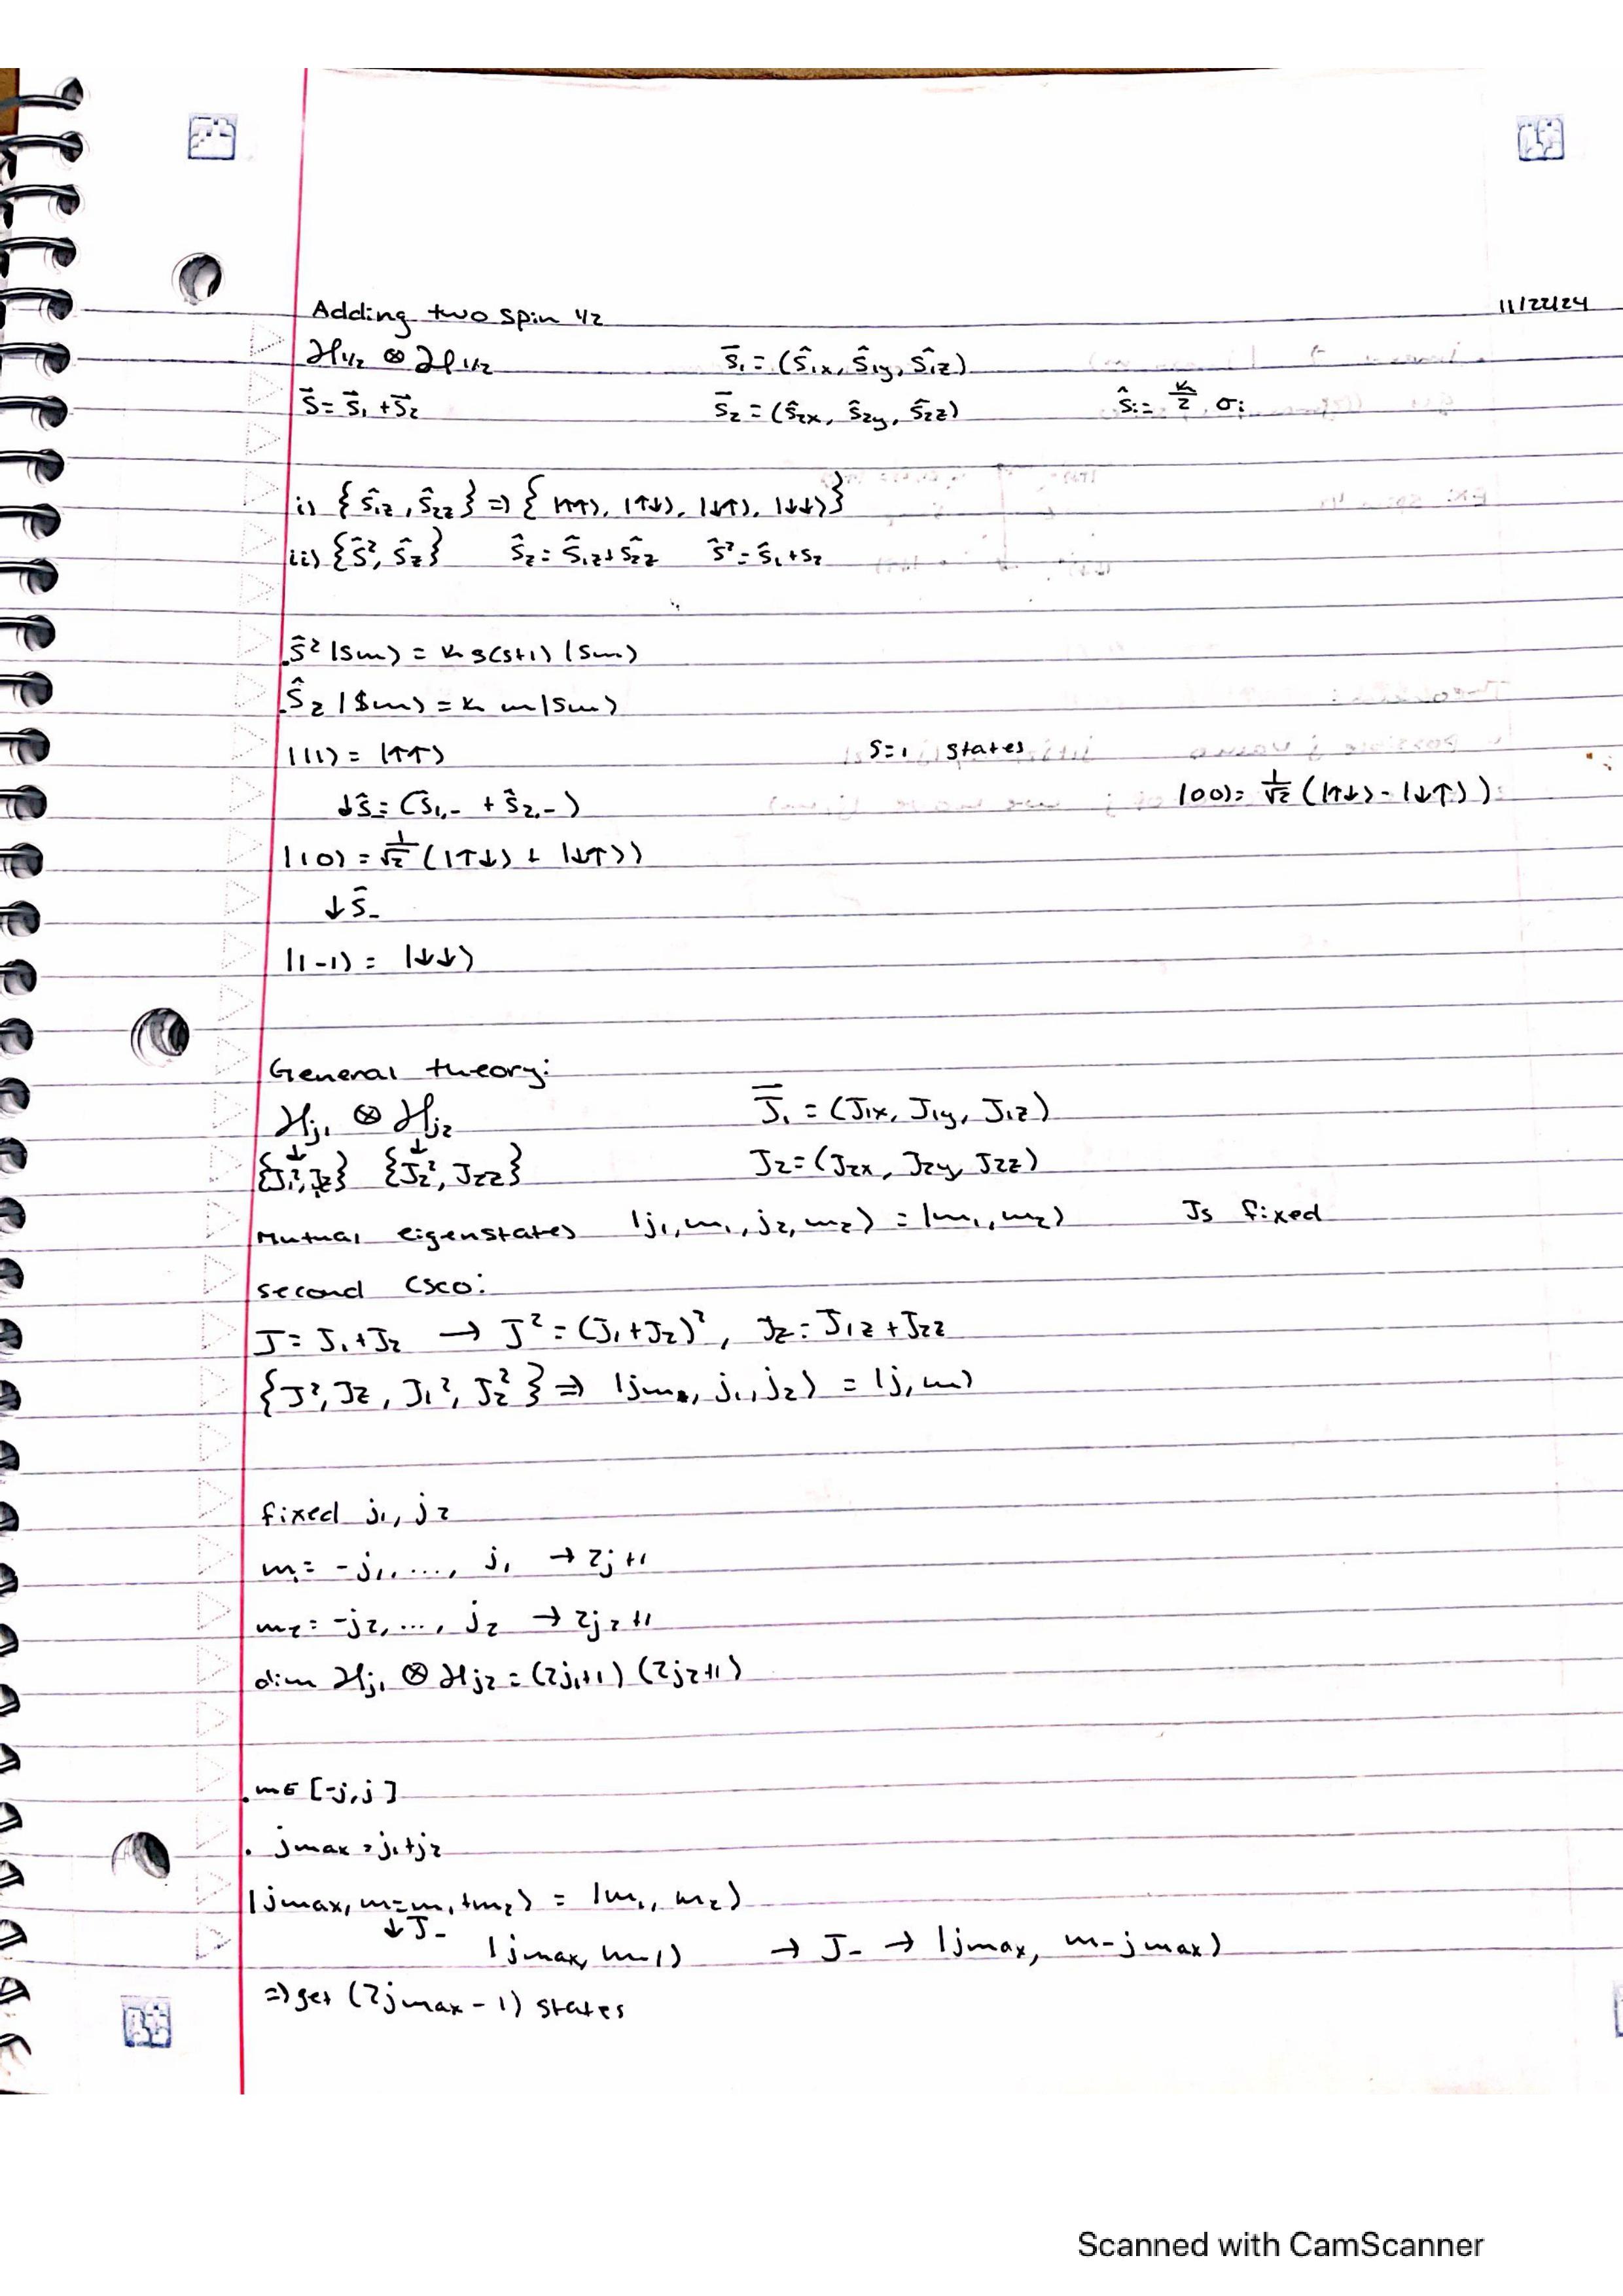 11/22/24
Adding two spin 1/2
ℋ1/2 ⊗ ℋ1/2   S⃗₁ = (Ŝ1x, Ŝ1y, Ŝ1z)
S⃗ = S⃗₁ + S⃗₂   S̄₂ = (Ŝ2x, Ŝ2y, Ŝ2z)   Ŝi = ħ/2 σi
i) {Ŝ1z, Ŝ2z} ⇒ {|↑↑⟩, |↑↓⟩, |↓↑⟩, |↓↓⟩}
ii) {Ŝ², Ŝz}   Ŝz = Ŝ1z + Ŝ2z   Ŝ² = Ŝ₁ + S₂
. Ŝ² |sm⟩ = ħ s(s+1) |sm⟩
. Ŝz |sm⟩ = ħ m |sm⟩
|11⟩ = |↑↑⟩   S=1 states
↓Ŝ = (Ŝ1,- + Ŝ2,-)   |00⟩ = 1/√2 (|↑↓⟩ - |↓↑⟩)
|10⟩ = 1/√2 (|↑↓⟩ + |↓↑⟩)
↓ Ŝ-
|1 -1⟩ = |↓↓⟩
General theory:
ℋj₁ ⊗ ℋj₂   J̄₁ = (J1x, J1y, J1z)
↓ ↓
{J₁², Jz} {J₂², J2z}   J₂ = (J2x, J2y, J2z)
Mutual eigenstates |j₁, m₁, j₂, m₂⟩ = |m₁, m₂⟩   Js fixed
second CSCO:
J = J₁ + J₂ → J² = (J₁ + J₂)², Jz = J1z + J2z
{J², Jz, J₁², J₂²} ⇒ |jm, j₁, j₂⟩ = |j, m⟩
fixed j₁, j₂
m₁ = -j₁, ..., j₁ → 2j+1
m₂ = -j₂, ..., j₂ → 2j₂+1
dim ℋj₁ ⊗ ℋj₂ = (2j₁+1) (2j₂+1)
. m ∈ [-j, j]
. jmax = j₁+j₂
|jmax, m=m₁+m₂⟩ = |m₁, m₂⟩
↓ J-
|jmax, m-1⟩ → J- → |jmax, m-jmax⟩
⇒ get (2jmax - 1) states
Scanned with CamScanner